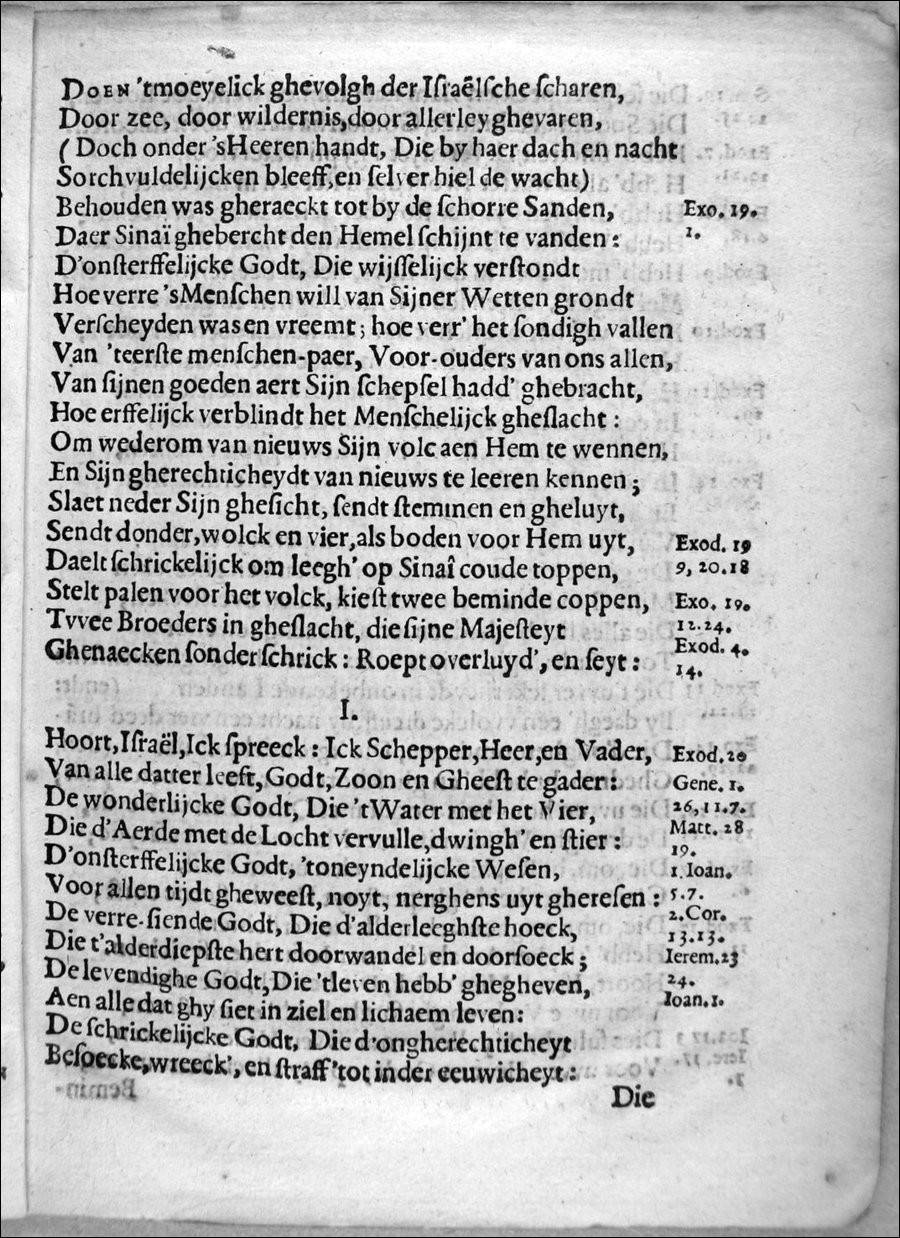 DOEN 'tmoeyelick ghevolgh der Iſraêlſche ſcharen,
Door zee, door wildernis,door allerley ghevaren,
( Doch onder 'sHeeren handt, Die by haer dach en nacht
Sorchvuldelijcken bleeff,en ſelver hiel de wacht)
Behouden was gheraeckt tot by de ſchorre Sanden, Exo. 19.
Daer Sinaï ghebercht den Hemel ſchijnt te vanden: 1.
D'onſterffelijcke Godt, Die wijſſelijck verſtondt
Hoe verre 'sMenſchen will van Sijner Wetten grondt
Verſcheyden was en vreemt; hoe verr' het ſondigh vallen
Van 'teerſte menſchen-paer, Voor-ouders van ons allen,
Van ſijnen goeden aert Sijn ſchepſel hadd' ghebracht,
Hoe erffelijck verblindt het Menſchelijck gheſlacht:
Om wederom van nieuws Sijn volc aen Hem te wennen,
En Sijn gherechticheydt van nieuws te leeren kennen;
Slaet neder Sijn gheſicht, ſendt ſtemmen en gheluyt,
Sendt donder,wolck en vier,als boden voor Hem uyt, Exod. 19
Daelt ſchrickelijck om leegh' op Sinaî coude toppen, 9, 20.18
Stelt palen voor het volck, kieſt twee beminde coppen, Exo. 19.
Tvvee Broeders in gheſlacht, die ſijne Majeſteyt 12.24.
Ghenaecken ſonder ſchrick: Roept overluyd', en ſeyt: Exod. 4.
14.
I.
Hoort,Iſraël,Ick ſpreeck: Ick Schepper,Heer,en Vader, Exod.20
Van alle datter leeft,Godt,Zoon en Gheeſt te gader: Gene. 1.
De wonderlijcke Godt, Die 't Water met het Vier, 26,11.7.
Die d'Aerde met de Locht vervulle,dwingh' en ſtier: Matt. 28
19.
D'onſterffelijcke Godt, 'toneyndelijcke Weſen, 1.Ioan.
Voor allen tijdt gheweeſt, noyt, nerghens uyt ghereſen: 5.7.
De verre-ſiende Godt, Die d'alderleeghſte hoeck, 2.Cor.
13.13.
Die t'alderdiepſte hert doorwandel en doorſoeck; Ierem.23
De levendighe Godt,Die 'tleven hebb' ghegheven, 24.
Aen alle dat ghy ſiet in ziel en lichaem leven: Ioan.1.
De ſchrickelijcke Godt, Die d'ongherechticheyt
Beſoecke,wreeck', en ſtraff 'tot in der eeuwicheyt:
Die